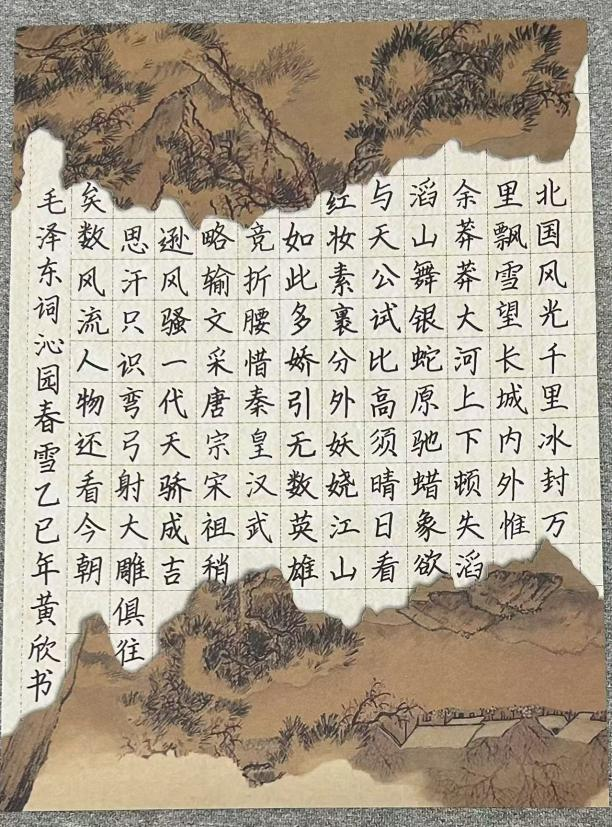 北国风光千里冰封万
里飘雪望长城内外惟
余莽莽大河上下顿失滔
滔山舞银蛇原驰蜡象欲
与天公试比高须晴日看
红妆素裹分外妖娆江山
如此多娇引无数英雄
竞折腰惜秦皇汉武
略输文采唐宗宋祖稍
逊风骚一代天骄成吉
思汗只识弯弓射大雕俱往
矣数风流人物还看今朝
毛泽东词沁园春雪乙巳年黄欣书